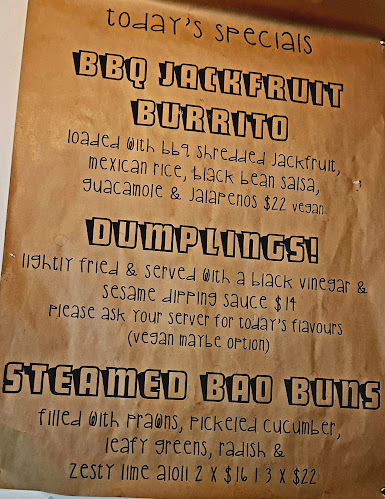 today's specials
BBQ JACKFRUIT
BURRITO
loaded with bbq shredded jackfruit,
mexican rice, black bean salsa,
guacamole & jalapenos $22 vegan
DUMPLINGS!
lightly fried & served with a black vinegar &
sesame dipping sauce $14
please ask your server for today's flavours
(vegan maybe option)
STEAMED BAO BUNS
filled with prawns, pickeled cucumber,
leafy greens, radish &
zesty lime aioli 2 x $16 | 3 x $22